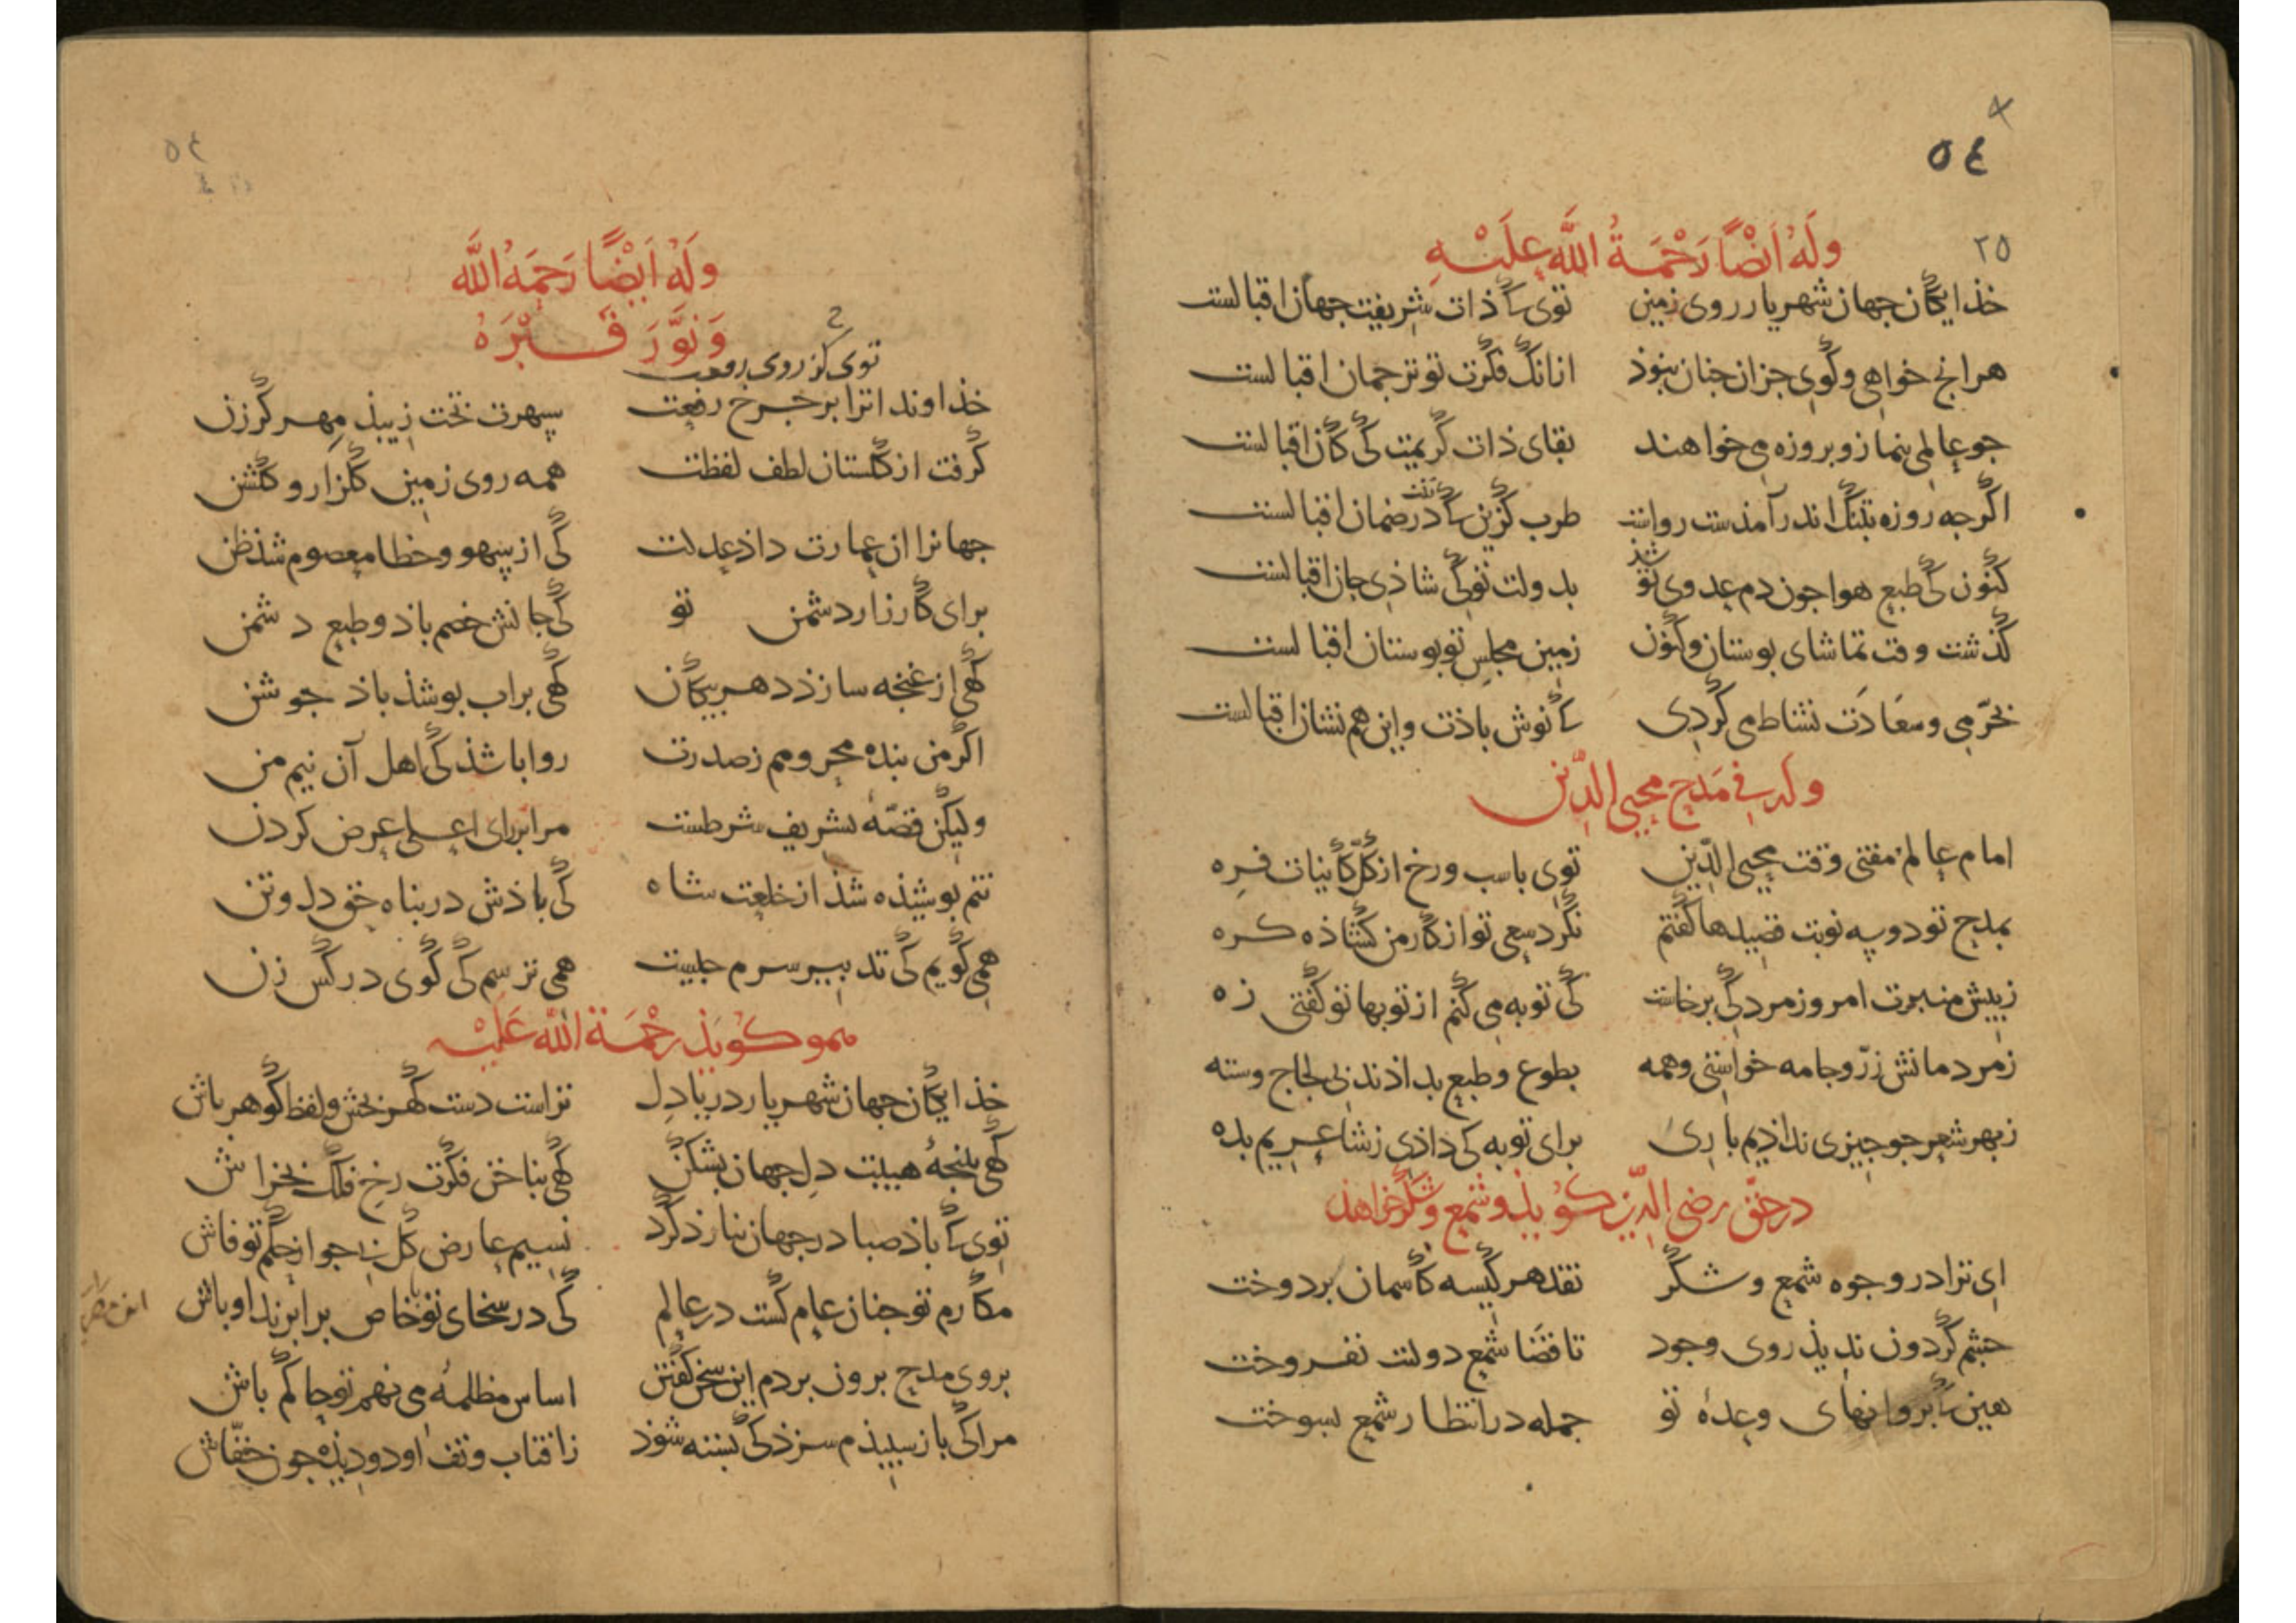 ٥٤
٢٥
وَلَهُ اَيْضًا رَحْمَةُ اللَّه عِلَيْهِ
خذایکان جهان شهریار روی زمین توی که ذات شریفت جهان اقبالست
هرانج خواهی و کوی جزان جنان نبوذ ازانک فکرت تو ترجمان اقبالست
جو عالمی بنماز و بروزه می خواهند بقای ذات کریمت کی کان اقبالست
اکرجه روزه بتنک اندر آمذست رواست طرب کزین که تنت در ضمان اقبالست
کنون کی طبع هوا جون دم عدوی تو شذ بدولت تو کی شاذی جان اقبالست
کذشت وقت تماشای بوستان وکنون زمین مجلس تو بوستان اقبالست
بخرّمی و سعَادَت نشاط می کردی که نوش باذت واین هم نشان اقبالست
وله فی مَدح محیی الدّین
امام عالم مفتی وقت محیی الدّین توی باسب ورخ از کلّ کاینات فره
بمدح تو دو سه نوبت قصیدها کفتم نکرد سعی تو از کار من کشاذه کره
زپیش منبرت امروز مردکی برخاست کی توبه می کنم از توبها تو کفتی زه
زمردمانش زرّ وجامه خواستی وهمه بطوع وطبع بداذند بی لجاج وسته
زبهر شعر جو جیزی نداذیم باری برای توبه کی داذی زشاعریم بده
درحقّ رضی الدّین کوید و شمع وشکر خواهد
ای ترا در وجوه شمع وشکر نقد هر کیسه کاسمان بردوخت
جشم کردون ندیذ روی وجود تا قضا شمع دولت نفروخت
هین که بروانهای وعدهٔ تو جمله در انتظار شمع بسوخت
٥٤
وَلَهُ اَيْضًا رَحِمَهُ اللَّه
وَنَوَّرَ قَبْرَهُ
توی کز روی رفعت
خذاوندا ترا بر جرخ رفعت سپهرت تخت زیبذ مهر کرزن
کرفت از کلستان لطف لفظت همه روی زمین کلزار و کلشن
جهانرا ان عمارت داذ عدلت کی از سهو وخطا معصوم شذ ظن
برای کارزار دشمن تو کی جانش خصم باذ وطبع دشمن
کهی از غنجه سازذ دهر بیکان کهی براب بوشذ باذ جوشن
اکر من بنده محرومم زصدرت روا باشذ کی اهل آن نیم من
ولیکن قصّهٔ تشریف شرطست مرا بر رای اعلی عرض کردن
تنم بوشیذه شذ از خلعت شاه کی باذش در بناه حق دل وتن
همی کویم کی تدبیر سرم جیست همی ترسم کی کوی در کس زن
هموکویذ رَحْمَة اللّٰه عَلَيْه
خذایکان جهان شهریار دریا دِل تراست دست کهربخش ولفظ کوهر باش
کهی بپنجهٔ هیبت دل جهان بشکن کهی بناخن فکرت رخ فلک بخراش
توی که باذ صبا در جهان نیارذ کرد نسیم عارض کل بی جواز حکم تو فاش
مکارم تو جنان عام کشت در عالم کی در سخای تو با خاص برابرند اوباش
بروی مدح برون بردم این سخن کفتن اساس مظلمهٔ می نهم تو حاکم باش
مرا کی باز سپیذم سزذ کی بسته شوذ زافتاب وتف او دو دیذه جون خفّاش